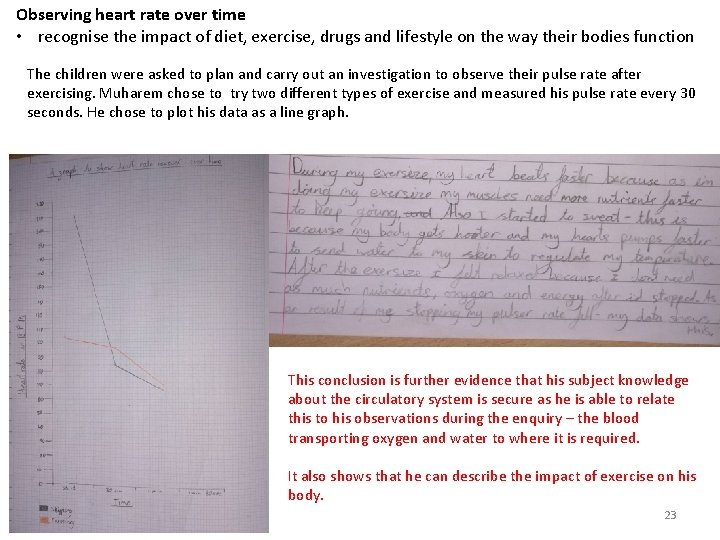 Observing heart rate over time
• recognise the impact of diet, exercise, drugs and lifestyle on the way their bodies function
The children were asked to plan and carry out an investigation to observe their pulse rate after
exercising. Muharem chose to try two different types of exercise and measured his pulse rate every 30
seconds. He chose to plot his data as a line graph.
A graph to show heart rate over time
Heart rate in B.P.M
Time
Skipping
Running
During my exersize, my heart beats faster because as im
doing my exersize my muscles need more nutrients faster
to help going, and Also I started to sweat - this is
because my body gets hooter and my hearts pumps faster
to send water to my skin to regulate my temperature.
After the exersize I felt relaxed because I dont need
as much nutriends, oxygen and energy after id stopped. As
an result of me stopping my pulser rate fell - my data shows
this.
This conclusion is further evidence that his subject knowledge
about the circulatory system is secure as he is able to relate
this to his observations during the enquiry – the blood
transporting oxygen and water to where it is required.
It also shows that he can describe the impact of exercise on his
body.
23